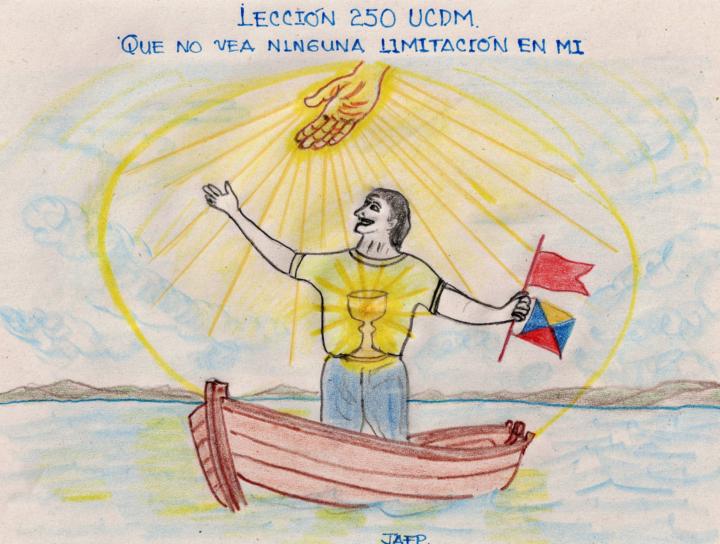 LECCIÓN 250 UCDM.
QUE NO VEA NINGUNA LIMITACIÓN EN MI
JAFP.